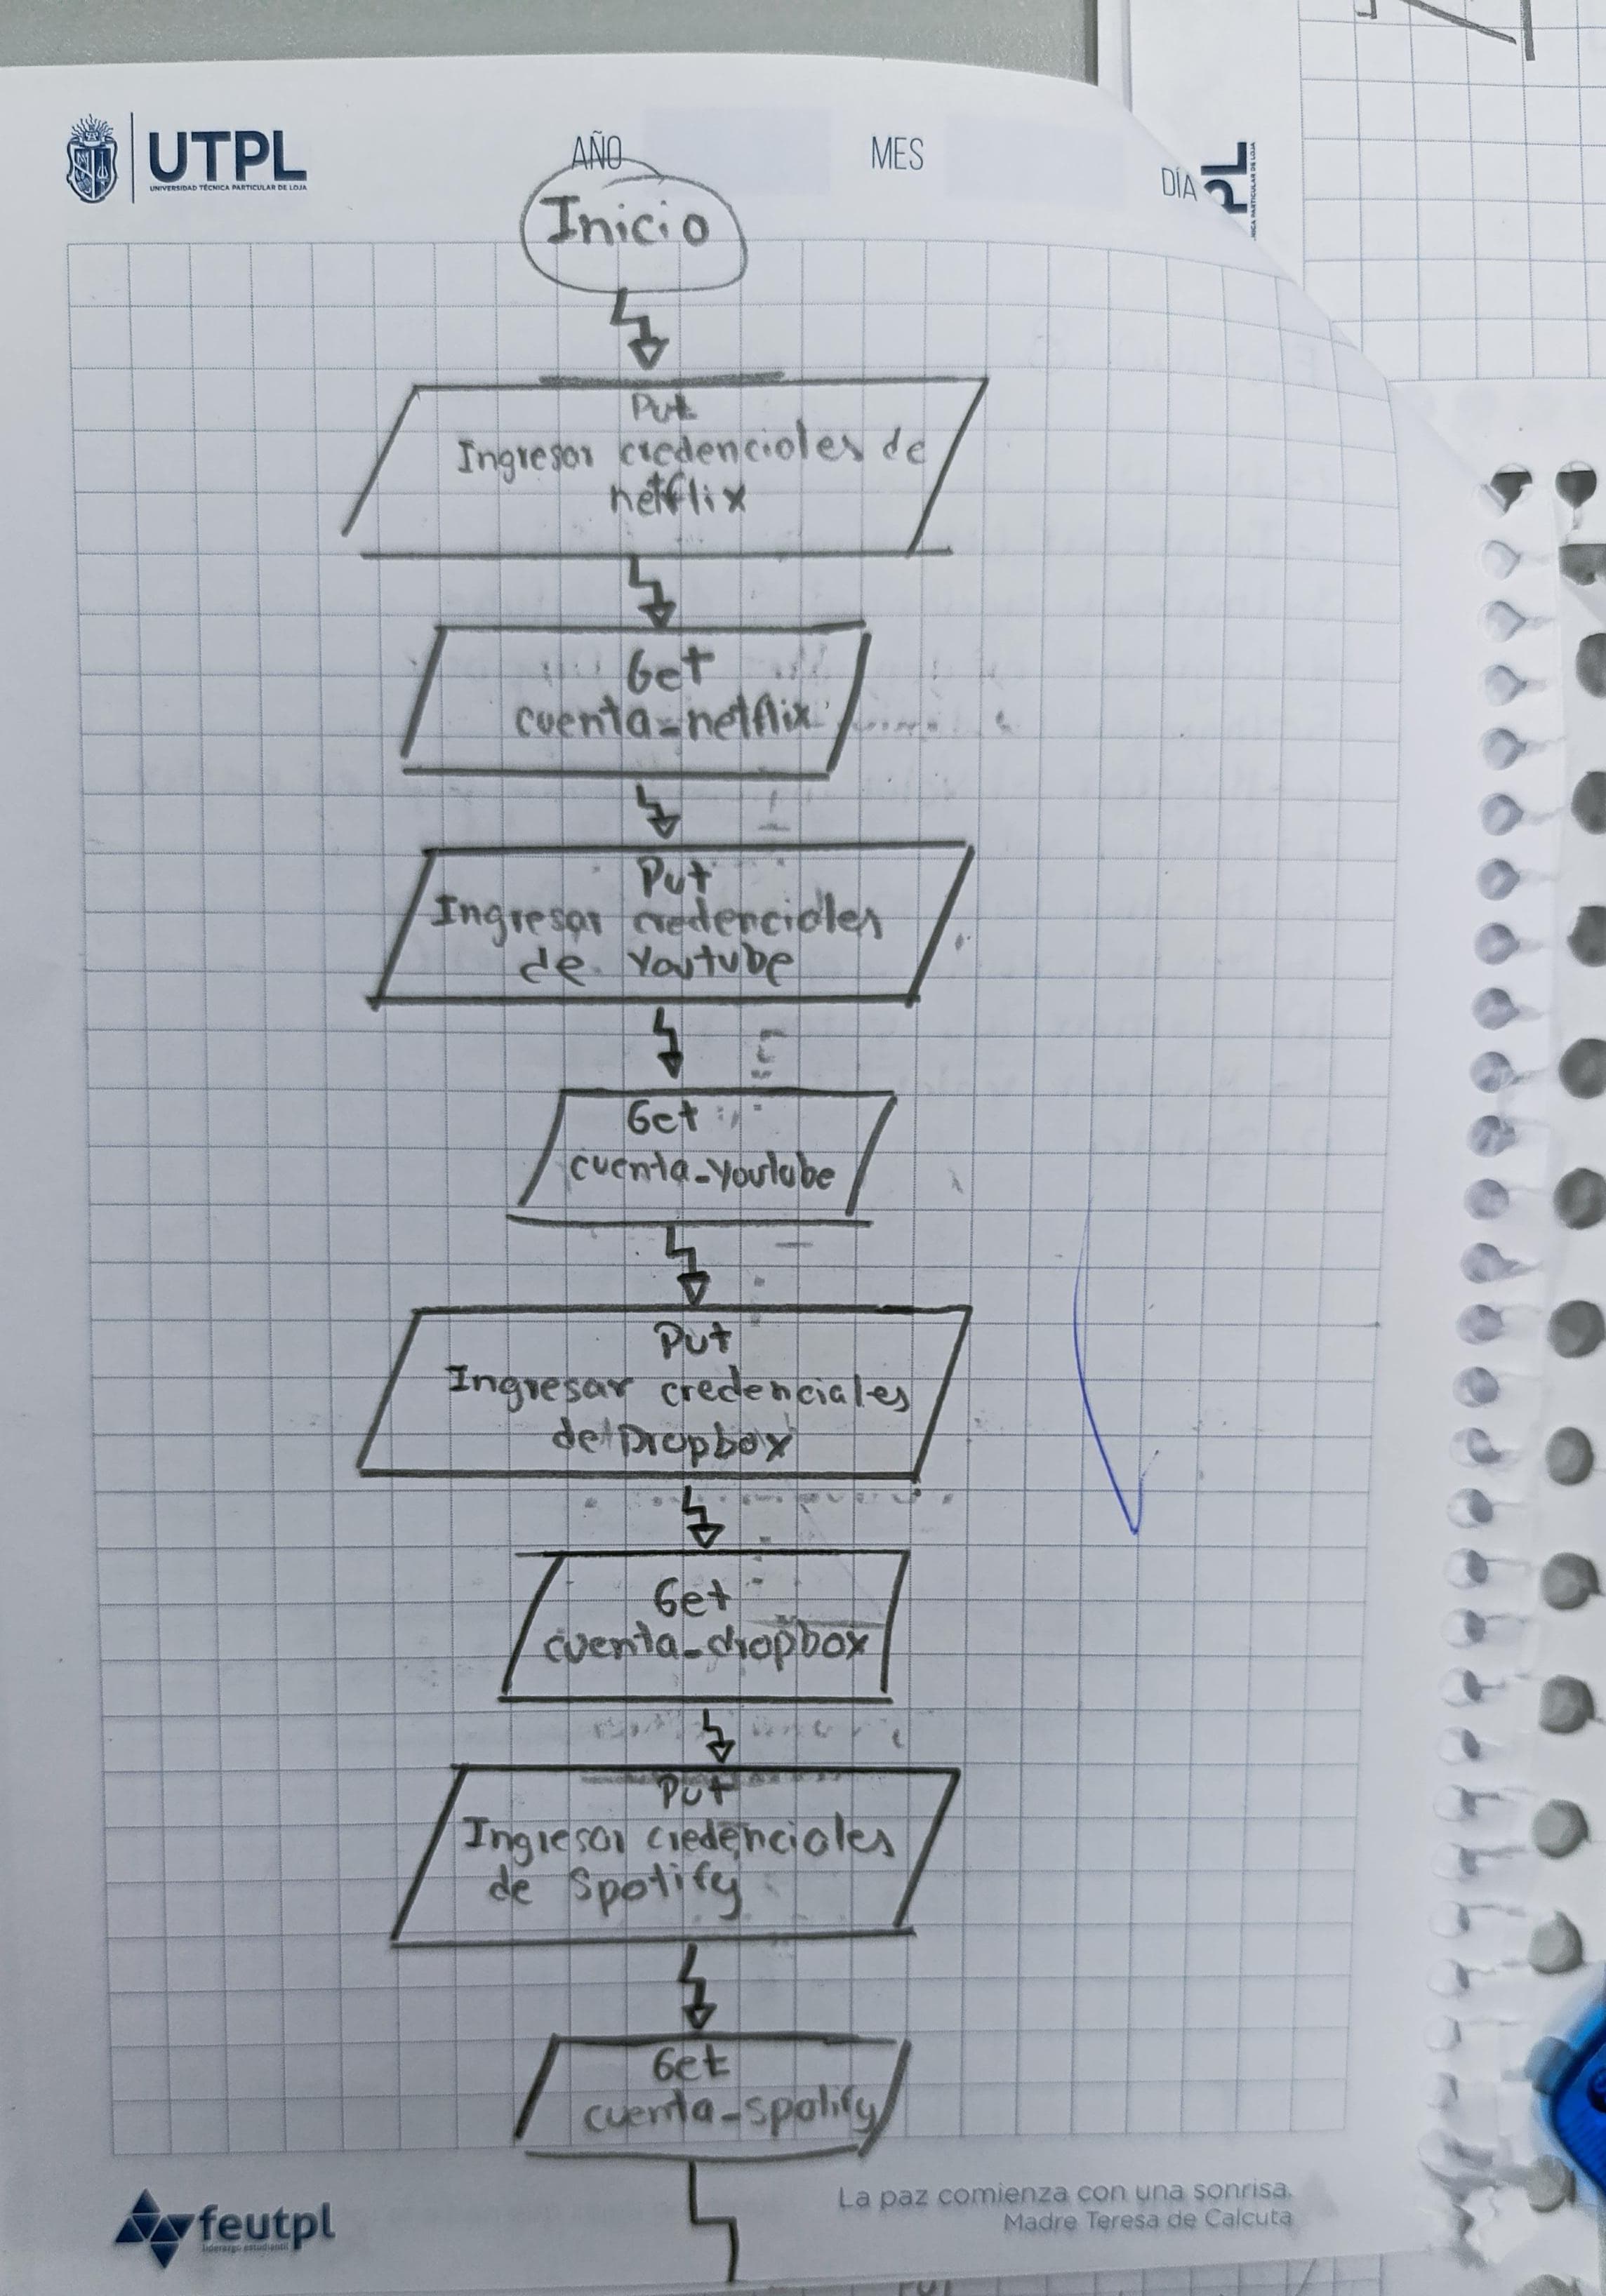 UTPL
UNIVERSIDAD TÉCNICA PARTICULAR DE LOJA
AÑO
MES
DÍA
PL
Inicio
Put
Ingresar credenciales de
netflix
Get
cuenta_netflix
Put
Ingresar credenciales
de Youtube
Get
cuenta_youtube
Put
Ingresar credenciales
de Dropbox
Get
cuenta_dropbox
Put
Ingresar credenciales
de Spotify
Get
cuenta_spotify
feutpl
Liderazgo estudiantil
La paz comienza con una sonrisa.
Madre Teresa de Calcuta